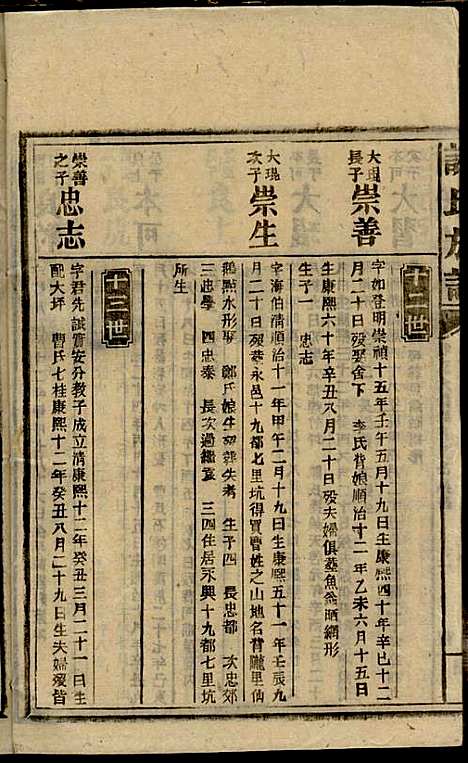 謝氏族譜
十二世
大琨長子 崇善
字如登明崇禎十五年壬午五月十九日生康熙四十年辛巳十二
月二十日歿娶舍下 李氏背娘順治十二年乙未六月十五日
生康熙六十年辛丑八月二十日歿夫婦俱塟魚翁晒網形
生子一 忠志
大琨次子 崇生
字海伯清順治十一年甲午二月十九日生康熙五十一年壬辰九
月二十日歿塟永邑十九都七里坑得買曹姓之山地名背隴里仙
鵝點水形娶 鄭氏娘生歿葬失考 生子四 長忠都 次忠郊
三忠學 四忠泰 長次過繼 三四住居永興十九都七里坑
所生
十三世
崇善之子 忠志
字君先誠實安分教子成立清康熙十二年癸丑三月二十一日生
配大坪 曹氏七桂康熙十二年癸丑八月二十九日生夫婦歿皆